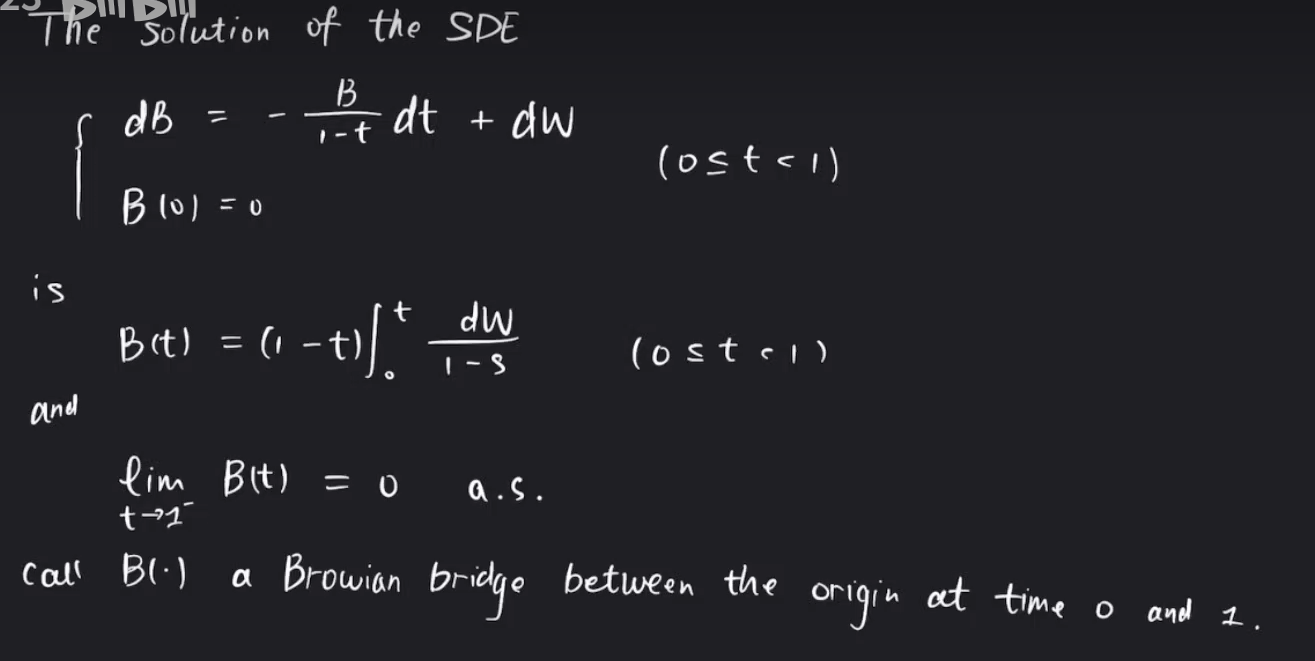 The solution of the SDE
{ dB = - B/(1-t) dt + dW
(0 ≤ t < 1)
B(0) = 0
is
B(t) = (1-t) ∫₀ᵗ dW/(1-s) (0 ≤ t < 1)
and
lim B(t) = 0 a.s.
t→1⁻
call B(·) a Browian bridge between the origin at time 0 and 1.